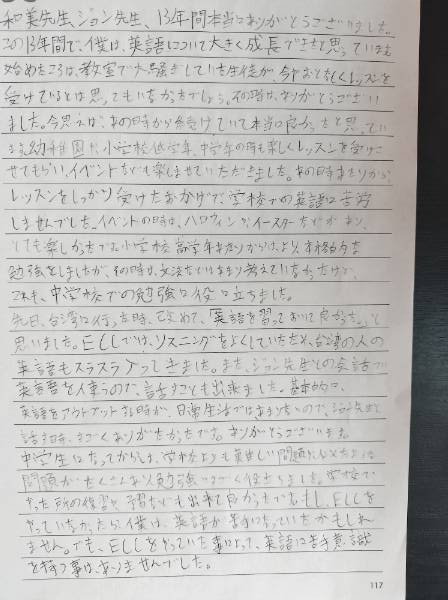 和美先生、ジョン先生、13年間本当にありがとうございました。
この13年間で、僕は、英語について大きく成長できたと思っています。
始めたころは、教室で大騒ぎしていた生徒が、今やおとなしくレッスンを
受けているとは思ってもいなかったでしょう。その時は、ありがとうござい
ました。今思えば、あの時から受けていて本当に良かったと思ってい
ます。幼稚園や、小学校低学年、中学年の時も楽しくレッスンを受けさ
せてもらい、イベントなども楽しませていただきました。あの時あたりから
レッスンをしっかり受けたおかげで、学校での英語は苦労
しませんでした。イベントの時は、ハロウィンや、イースターなどがあり、
とても楽しかったです。小学校高学年あたりからは、より本格的な
勉強をしましたが、その時は、文法などはあまり考えていなかったけど、
これも、中学校での勉強に役に立ちました。
先日、台湾に行った時、改めて、「英語を習っておいて良かった。」と
思いました。ECCでは、リスニングをよくしていたため、台湾の人の
英語もスラスラ入ってきました。また、ジョン先生との会話で
英語を使うので、話すことも出来ました。基本的に、
英語をアウトプットする時が、日常生活ではあまりないので、ジョン先生と
話す時、すごくありがたかったです。ありがとうございます。
中学生になってからは、学校よりも難しい問題
問題がたくさんあり勉強にすごく役立ちました。学校で
やった所の復習や、予習なども出来て良かったです。もし、ECCを
やっていなかったら、僕は、英語が苦手になっていたかもしれ
ません。でも、ECCをやっていた事によって、英語に苦手意識
を持つ事は、ありませんでした。
117